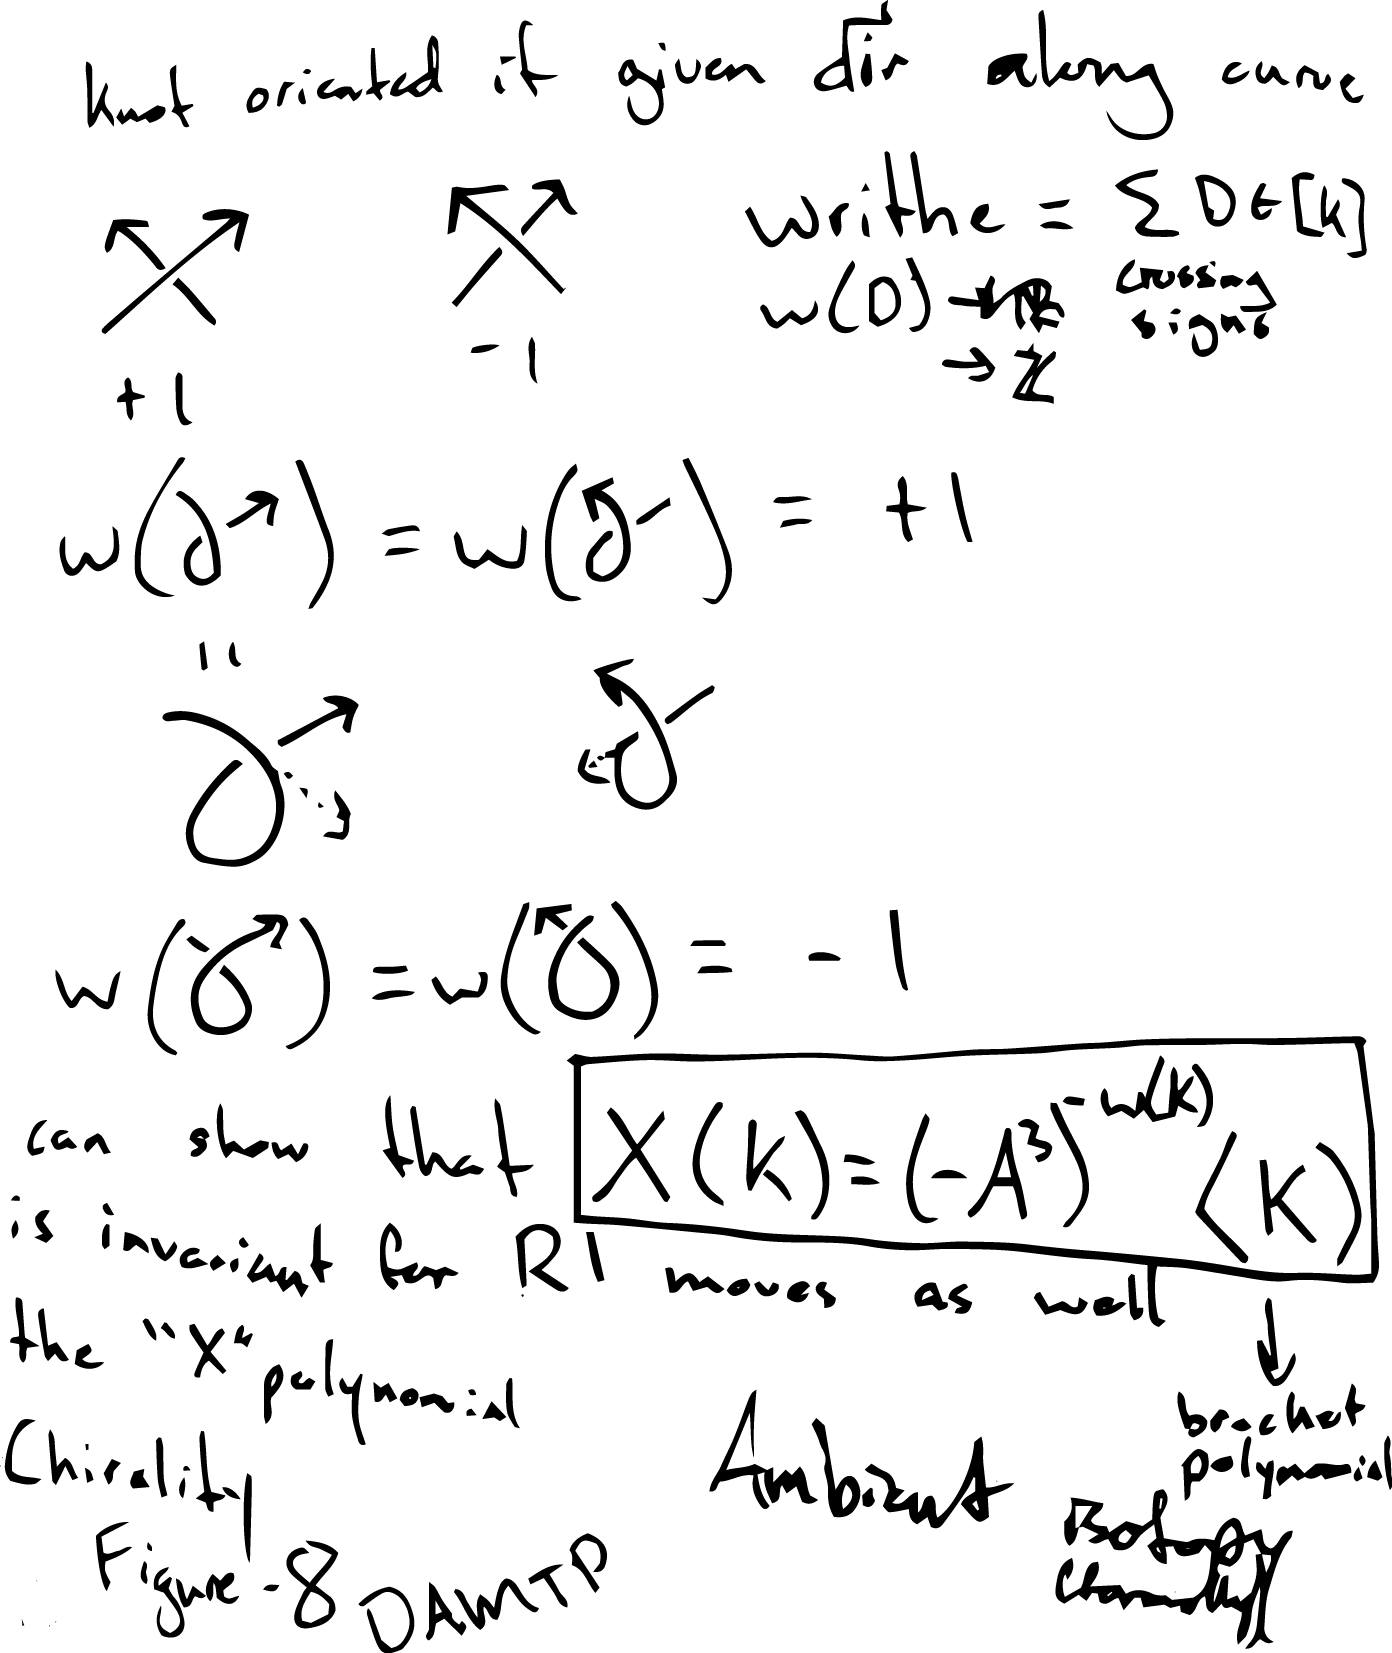 knot oriented if given dir along curve
writhe = Σ D ∈ [K]
crossing signs
w(D) → ℤ
+1
-1
w( ) = w( ) = +1
"
w( ) = w( ) = -1
can show that X(K) = (-A³)^{-w(K)} ⟨K⟩
is invariant for R1 moves as well
the "X" polynomial
bracket
polynomial
Chirality
Ambient Isotopy
Figure-8 DAMTP